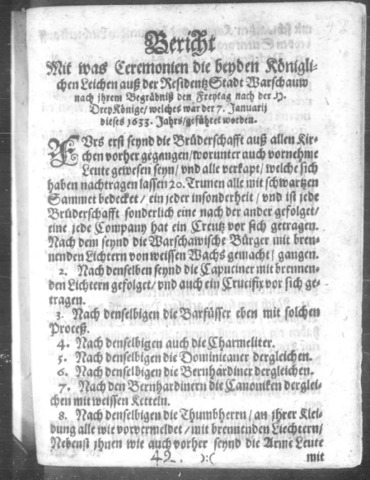 Bericht
Mit was Ceremonien die beyden Königli-
chen Leichen auß der Residentz Stadt Warschauw
nach jhrem Begräbniß den Freytag nach der H.
Drey Könige / welches war der 7. Januarij
dieses 1633. Jahrs / geführet worden.
FVrs erst seynd die Brüderschafft auß allen Kir-
chen vorher gegangen / worunter auch vornehme
Leute gewesen seyn / vnd alle verkapt / welche sich
haben nachtragen lassen 20. Trunen alle mit schwartzen
Sammet bedecket / ein jeder insonderheit / vnd ist jede
Brüderschafft sonderlich eine nach der ander gefolget /
eine jede Company hat ein Creutz vor sich getragen.
Nach dem seynd die Warschawische Bürger mit bren-
nenden Lichtern von weissen Wachs gemacht / gangen.
2. Nach denselben seynd die Capuciner mit brennen-
den Lichtern gefolget / vnd auch ein Crucifix vor sich ge-
tragen.
3. Nach denselbigen die Barfüsser eben mit solchen
Proceß.
4. Nach denselbigen auch die Charmeliter.
5. Nach denselbigen die Dominicaner dergleichen.
6. Nach denselbigen die Bernhardiner dergleichen.
7. Nach den Bernhardinern die Canoniken derglei-
chen mit weissen Ketteln.
8. Nach denselbigen die Thumbherrn / an jhrer Klei-
dung alle wie vorvermeldet / mit brennenden Liechtern /
Nebenst jhnen wie auch vorher seynd die Arme Leute
49. ):( mit